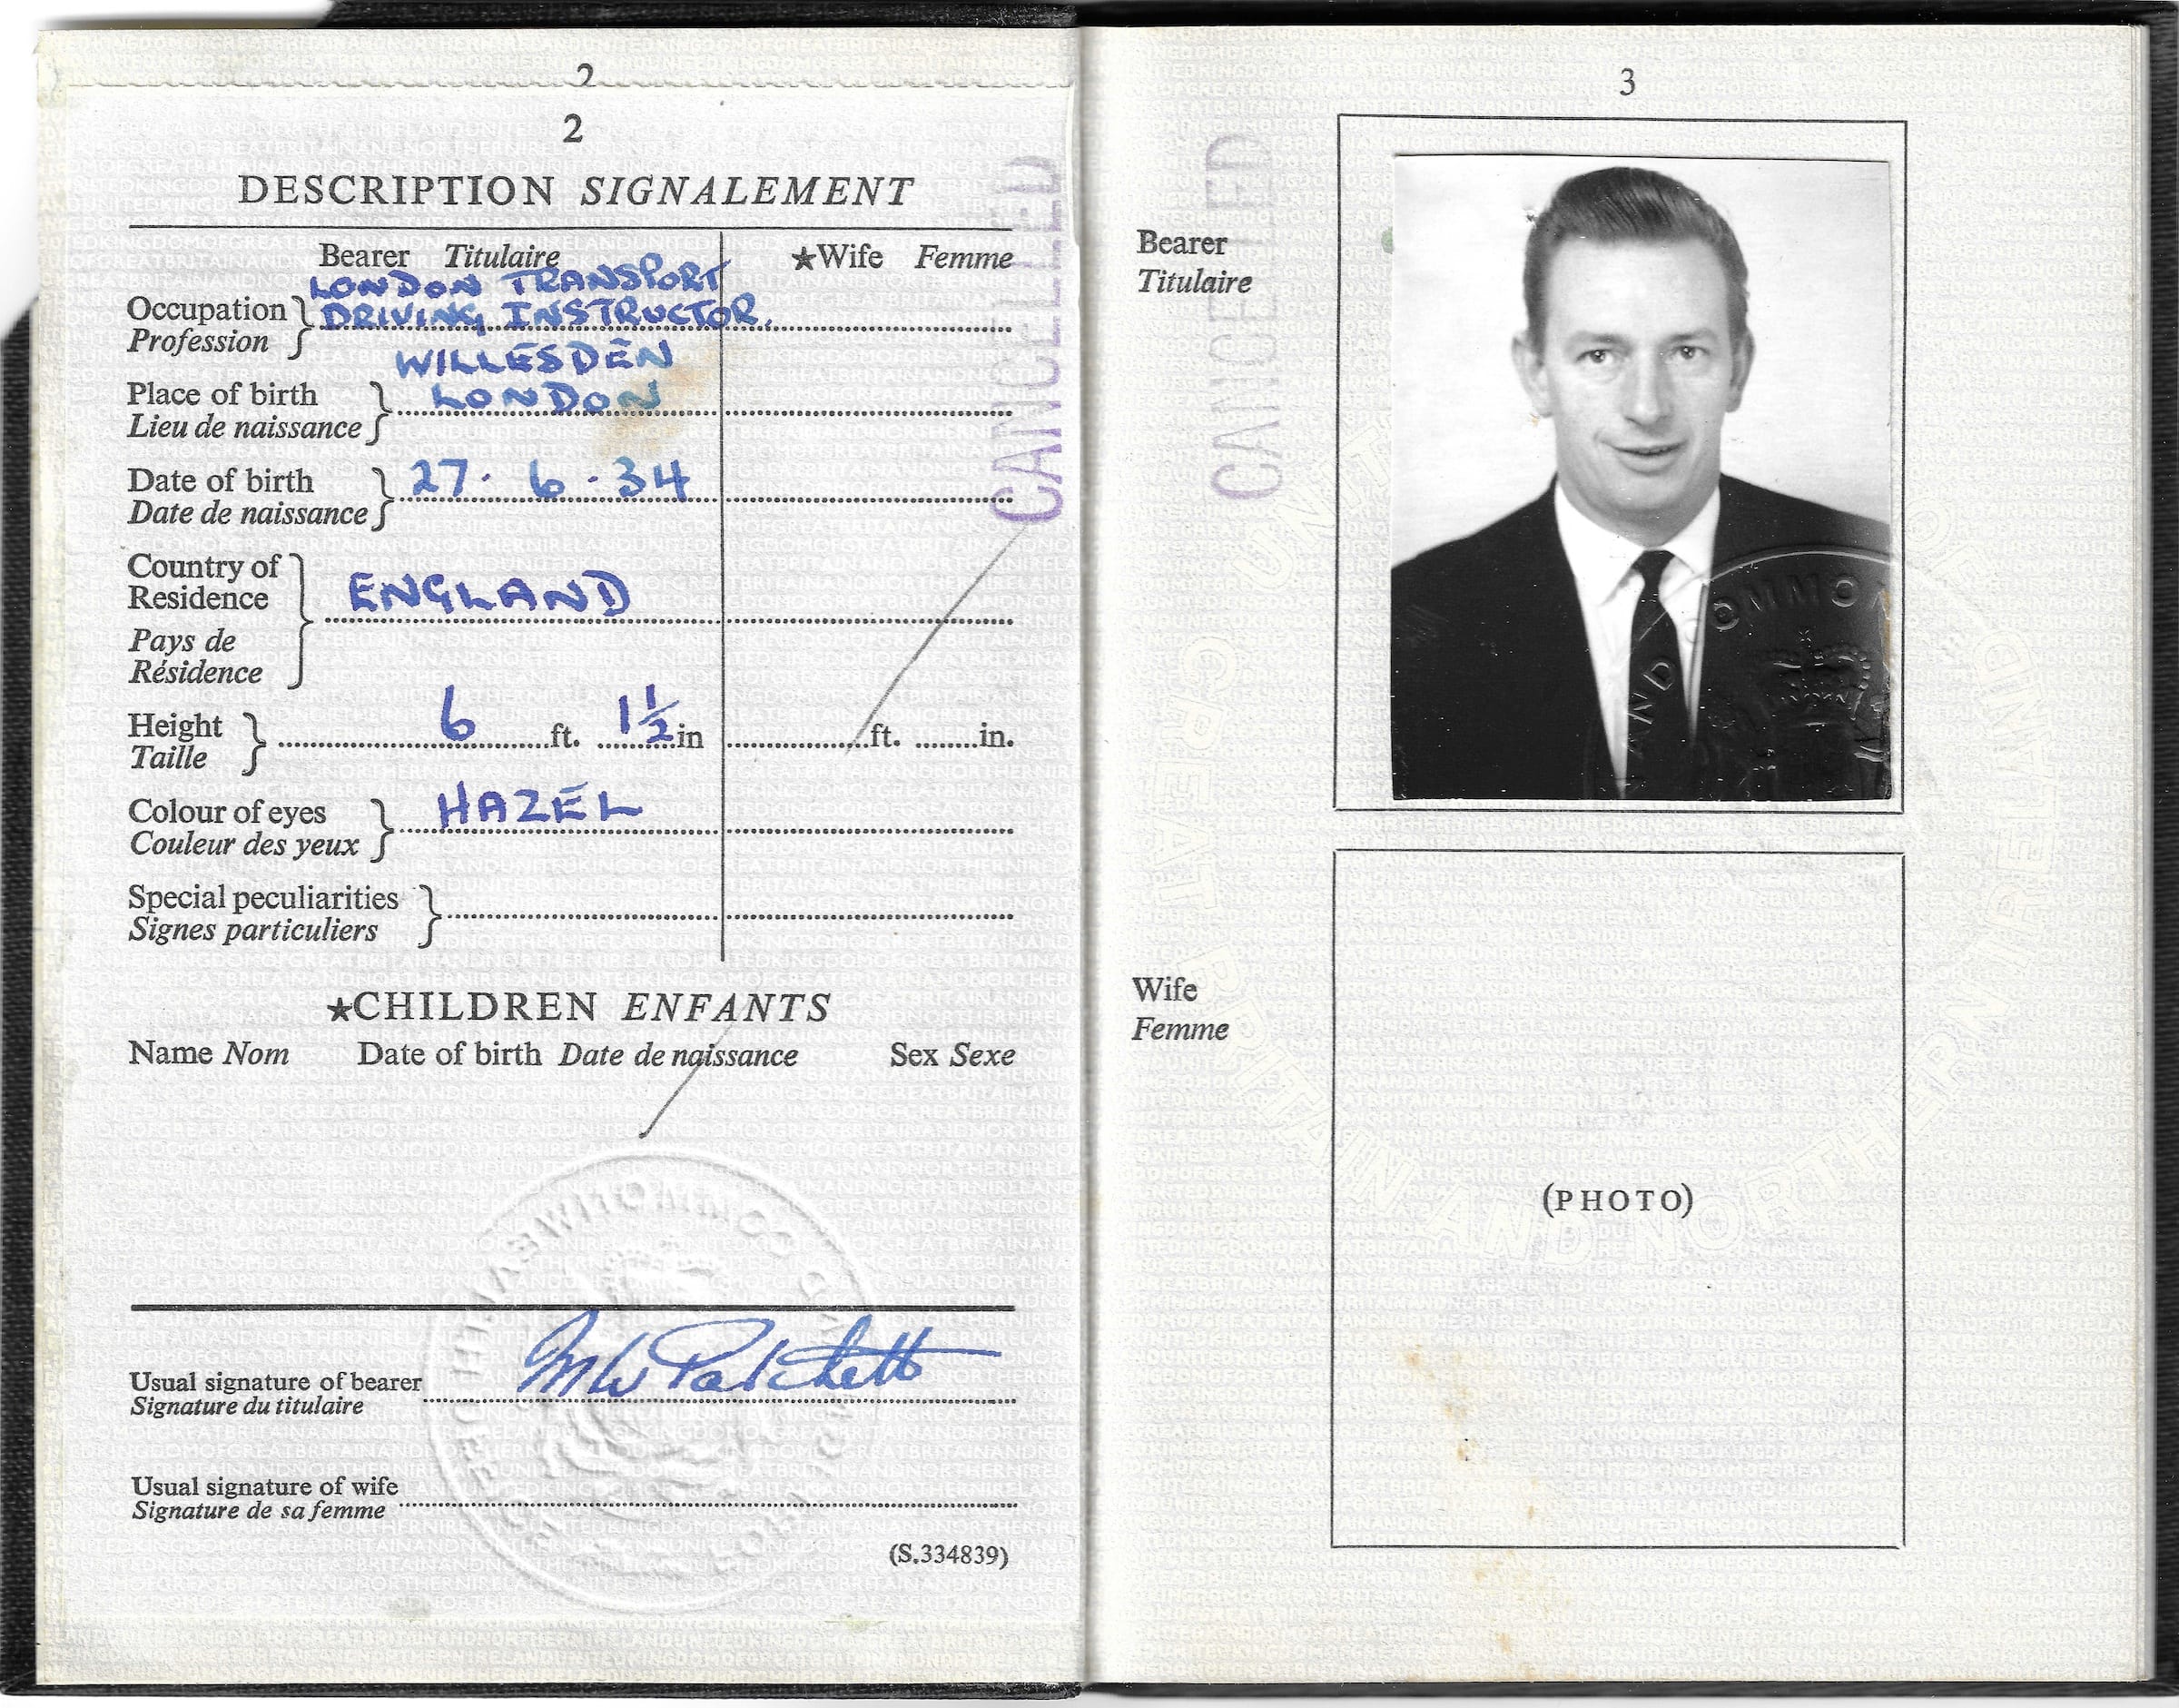 2
2
DESCRIPTION SIGNALEMENT
Bearer Titulaire ★Wife Femme
LONDON TRANSPORT
Occupation DRIVING INSTRUCTOR.
Profession
WILLESDEN
Place of birth LONDON
Lieu de naissance
Date of birth 27. 6. 34
Date de naissance
Country of
Residence ENGLAND
Pays de
Résidence
Height 6 ft. 1½ in ft. in.
Taille
Colour of eyes HAZEL
Couleur des yeux
Special peculiarities
Signes particuliers
★CHILDREN ENFANTS
Name Nom Date of birth Date de naissance Sex Sexe
Usual signature of bearer MW Patchett
Signature du titulaire
Usual signature of wife
Signature de sa femme
(S.334839)
CANCELLED
3
Bearer
Titulaire
CANCELLED
OMMON
AND
Wife
Femme
(PHOTO)
UNITED KINGDOM OF GREAT BRITAIN AND NORTHERN IRELAND